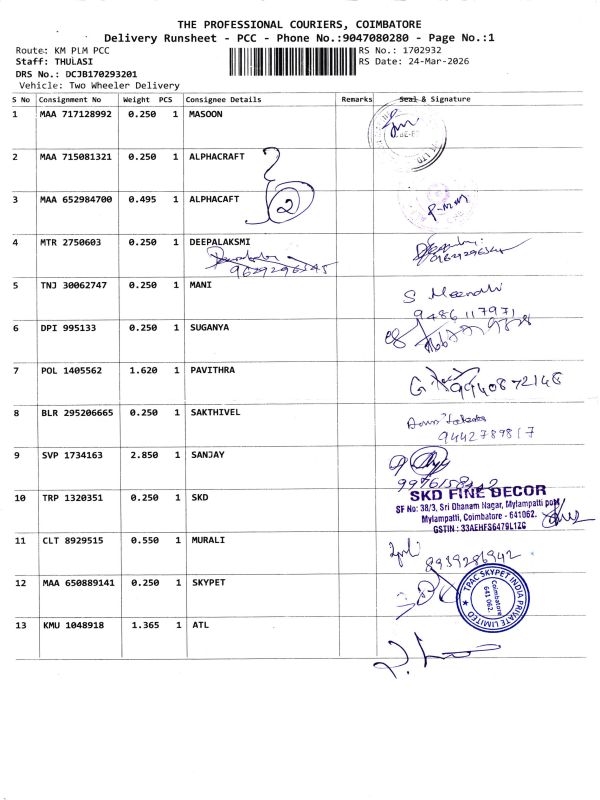 THE PROFESSIONAL COURIERS, COIMBATORE
Delivery Runsheet - PCC - Phone No.:9047080280 - Page No.:1
Route: KM PLM PCC
RS No.: 1702932
Staff: THULASI
RS Date: 24-Mar-2026
DRS No.: DCJB170293201
Vehicle: Two Wheeler Delivery
S No Consignment No Weight PCS Consignee Details Remarks Seal & Signature
1 MAA 717128992 0.250 1 MASOON
2 MAA 715081321 0.250 1 ALPHACRAFT
3 MAA 652984700 0.495 1 ALPHACAFT
2
4 MTR 2750603 0.250 1 DEEPALAKSMI
9629296545
5 TNJ 30062747 0.250 1 MANI
S
9486117971
6 DPI 995133 0.250 1 SUGANYA
7 POL 1405562 1.620 1 PAVITHRA
9940872148
8 BLR 295206665 0.250 1 SAKTHIVEL
9442789817
9 SVP 1734163 2.850 1 SANJAY
10 TRP 1320351 0.250 1 SKD
SKD FINE DECOR
SF No: 38/3, Sri Dhanam Nagar, Mylampatti post
Mylampatti, Coimbatore - 641062.
GSTIN : 33AEHFS6479L1ZG
11 CLT 8929515 0.550 1 MURALI
8939286942
12 MAA 650889141 0.250 1 SKYPET
TPAC SKYPET INDIA PRIVATE LIMITED
Coimbatore
641 062.
13 KMU 1048918 1.365 1 ATL